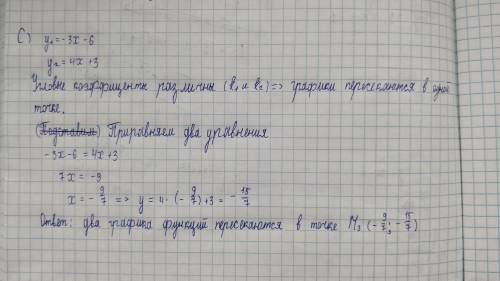 C) y₁=-3x-6
y₂=4x+3
Угловые коэффициенты различны (k₁ и k₂) => графики пересекаются в одной
точке.
(Подставим) Приравняем два уравнения
-3x-6=4x+3
7x=-9
x=-9/7 => y=4·(-9/7)+3=-15/7
Ответ: два графика функций пересекаются в точке M₃(-9/7;-15/7)